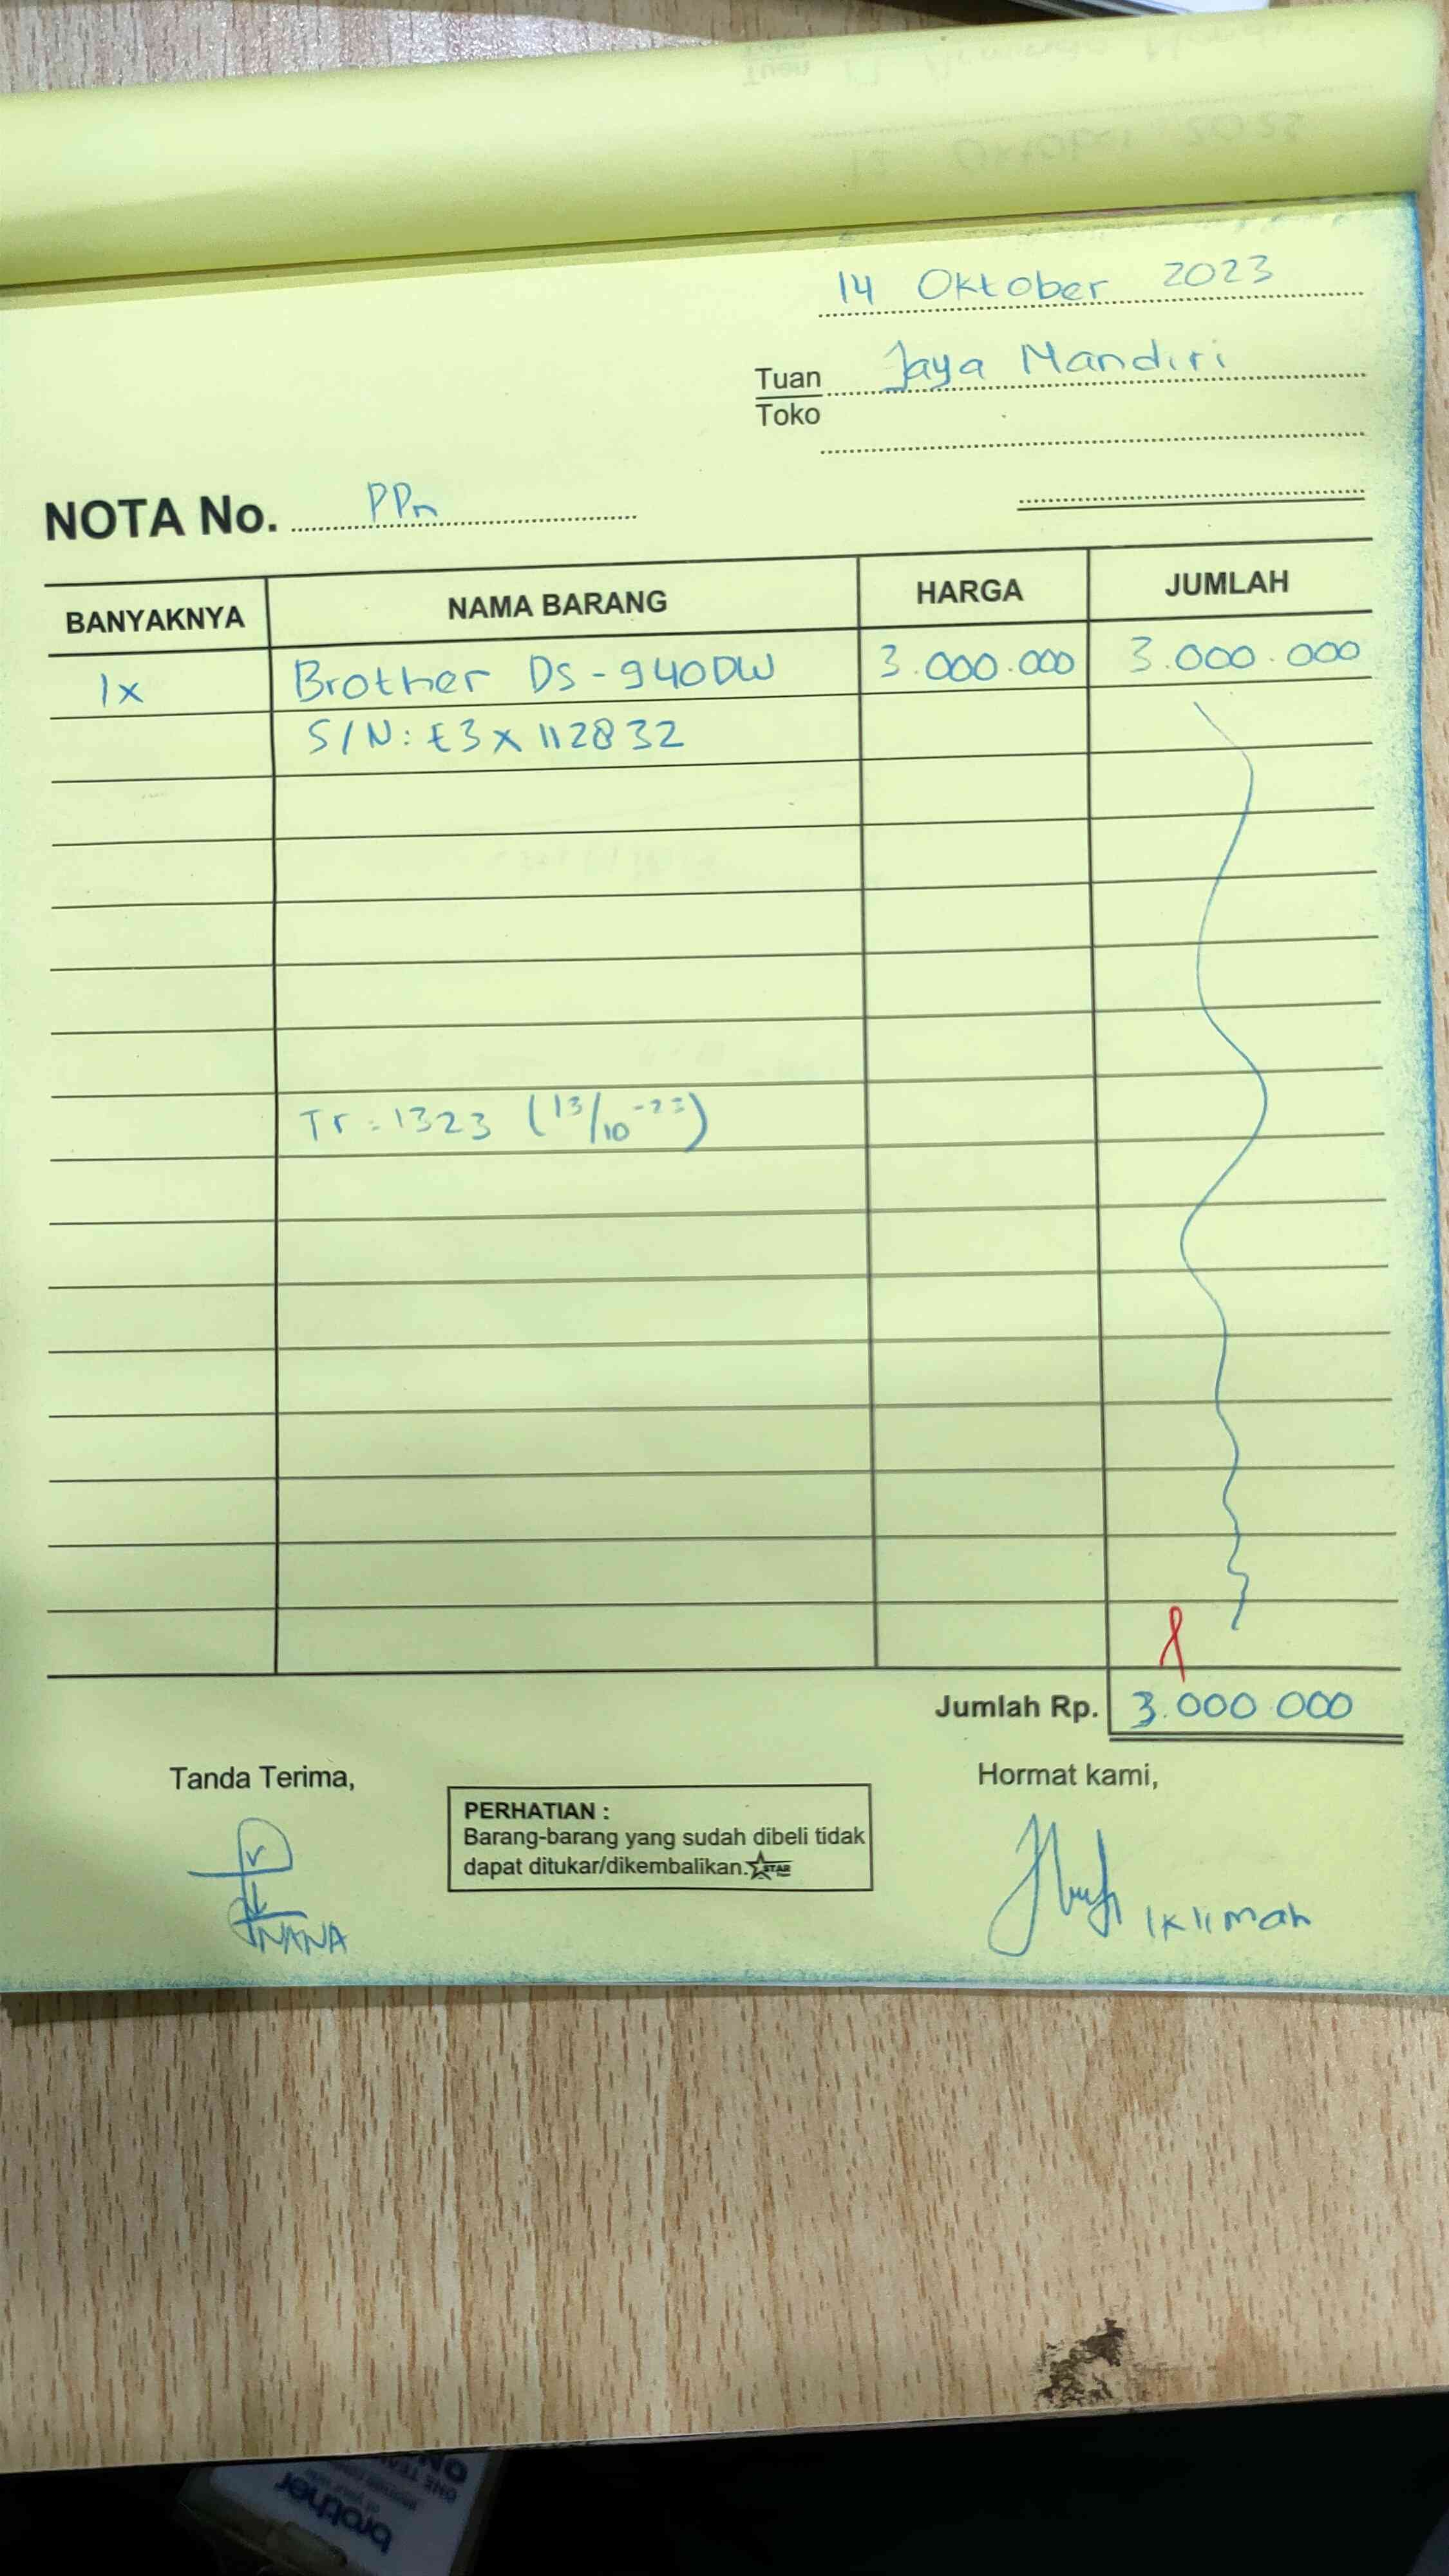 14 Oktober 2023
Tuan Jaya Mandiri
Toko
NOTA No. PPn
BANYAKNYA NAMA BARANG HARGA JUMLAH
1x Brother DS-940DW 3.000.000 3.000.000
S/N: E3X112832
Tr = 1323 (13/10-23)
Jumlah Rp. 3.000.000
Tanda Terima, Hormat kami,
PERHATIAN :
Barang-barang yang sudah dibeli tidak
dapat ditukar/dikembalikan. STAR
NANA
Iklimah
brother